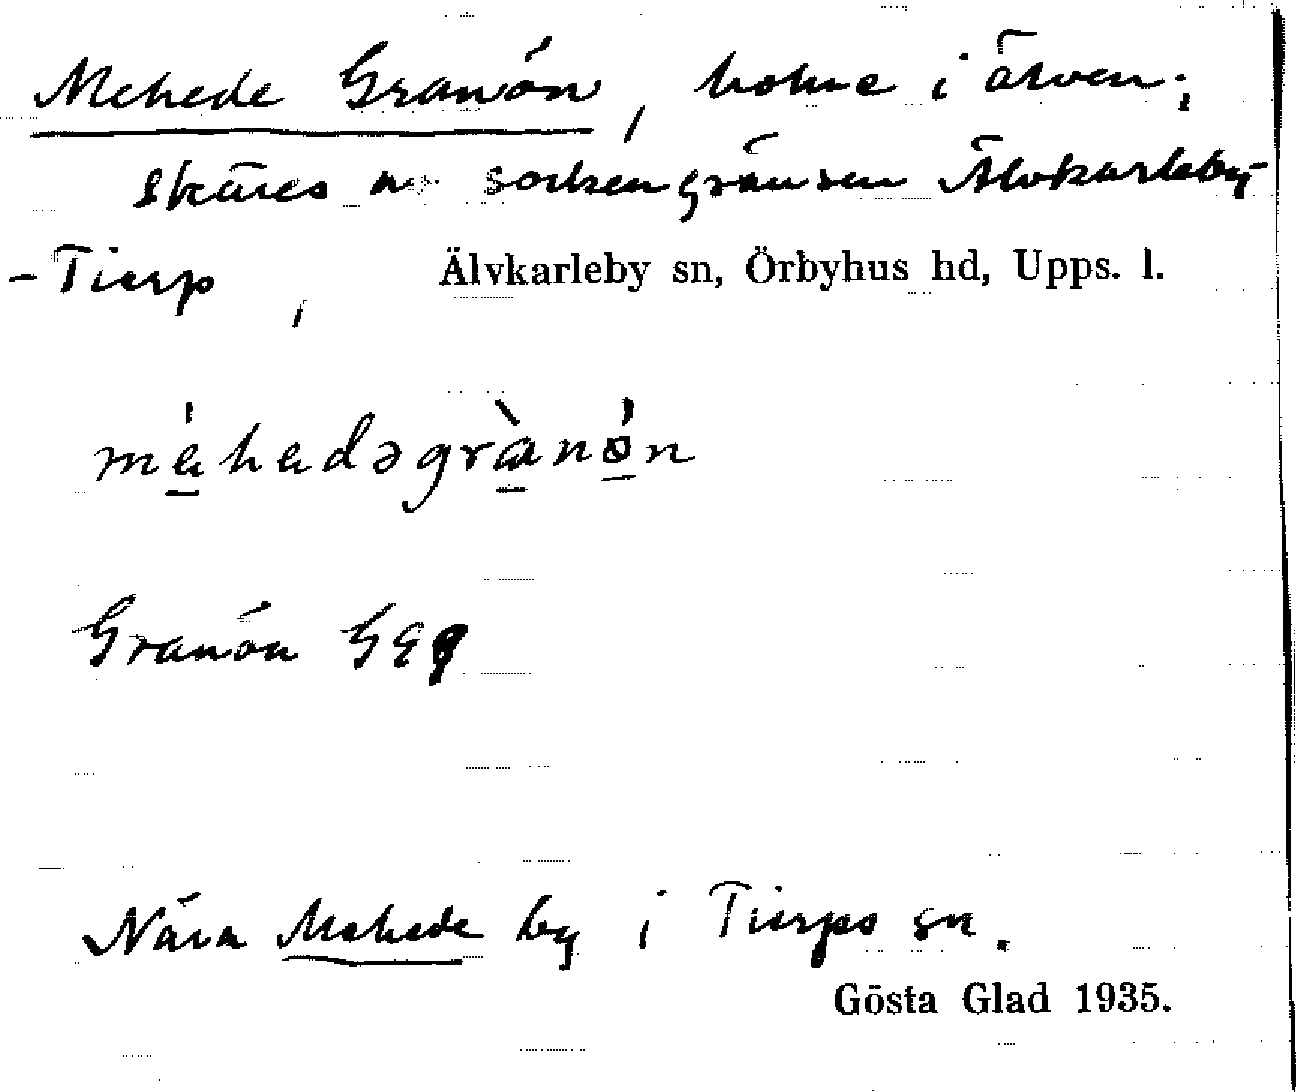 Mehede Granön, holme i älven;
skäres av sockengränsen Älvkarleby-
-Tierp, Älvkarleby sn, Örbyhus hd, Upps. l.
mèhedəgrànón
Granön GEQ
Nära Mehede by i Tierps sn.
Gösta Glad 1935.